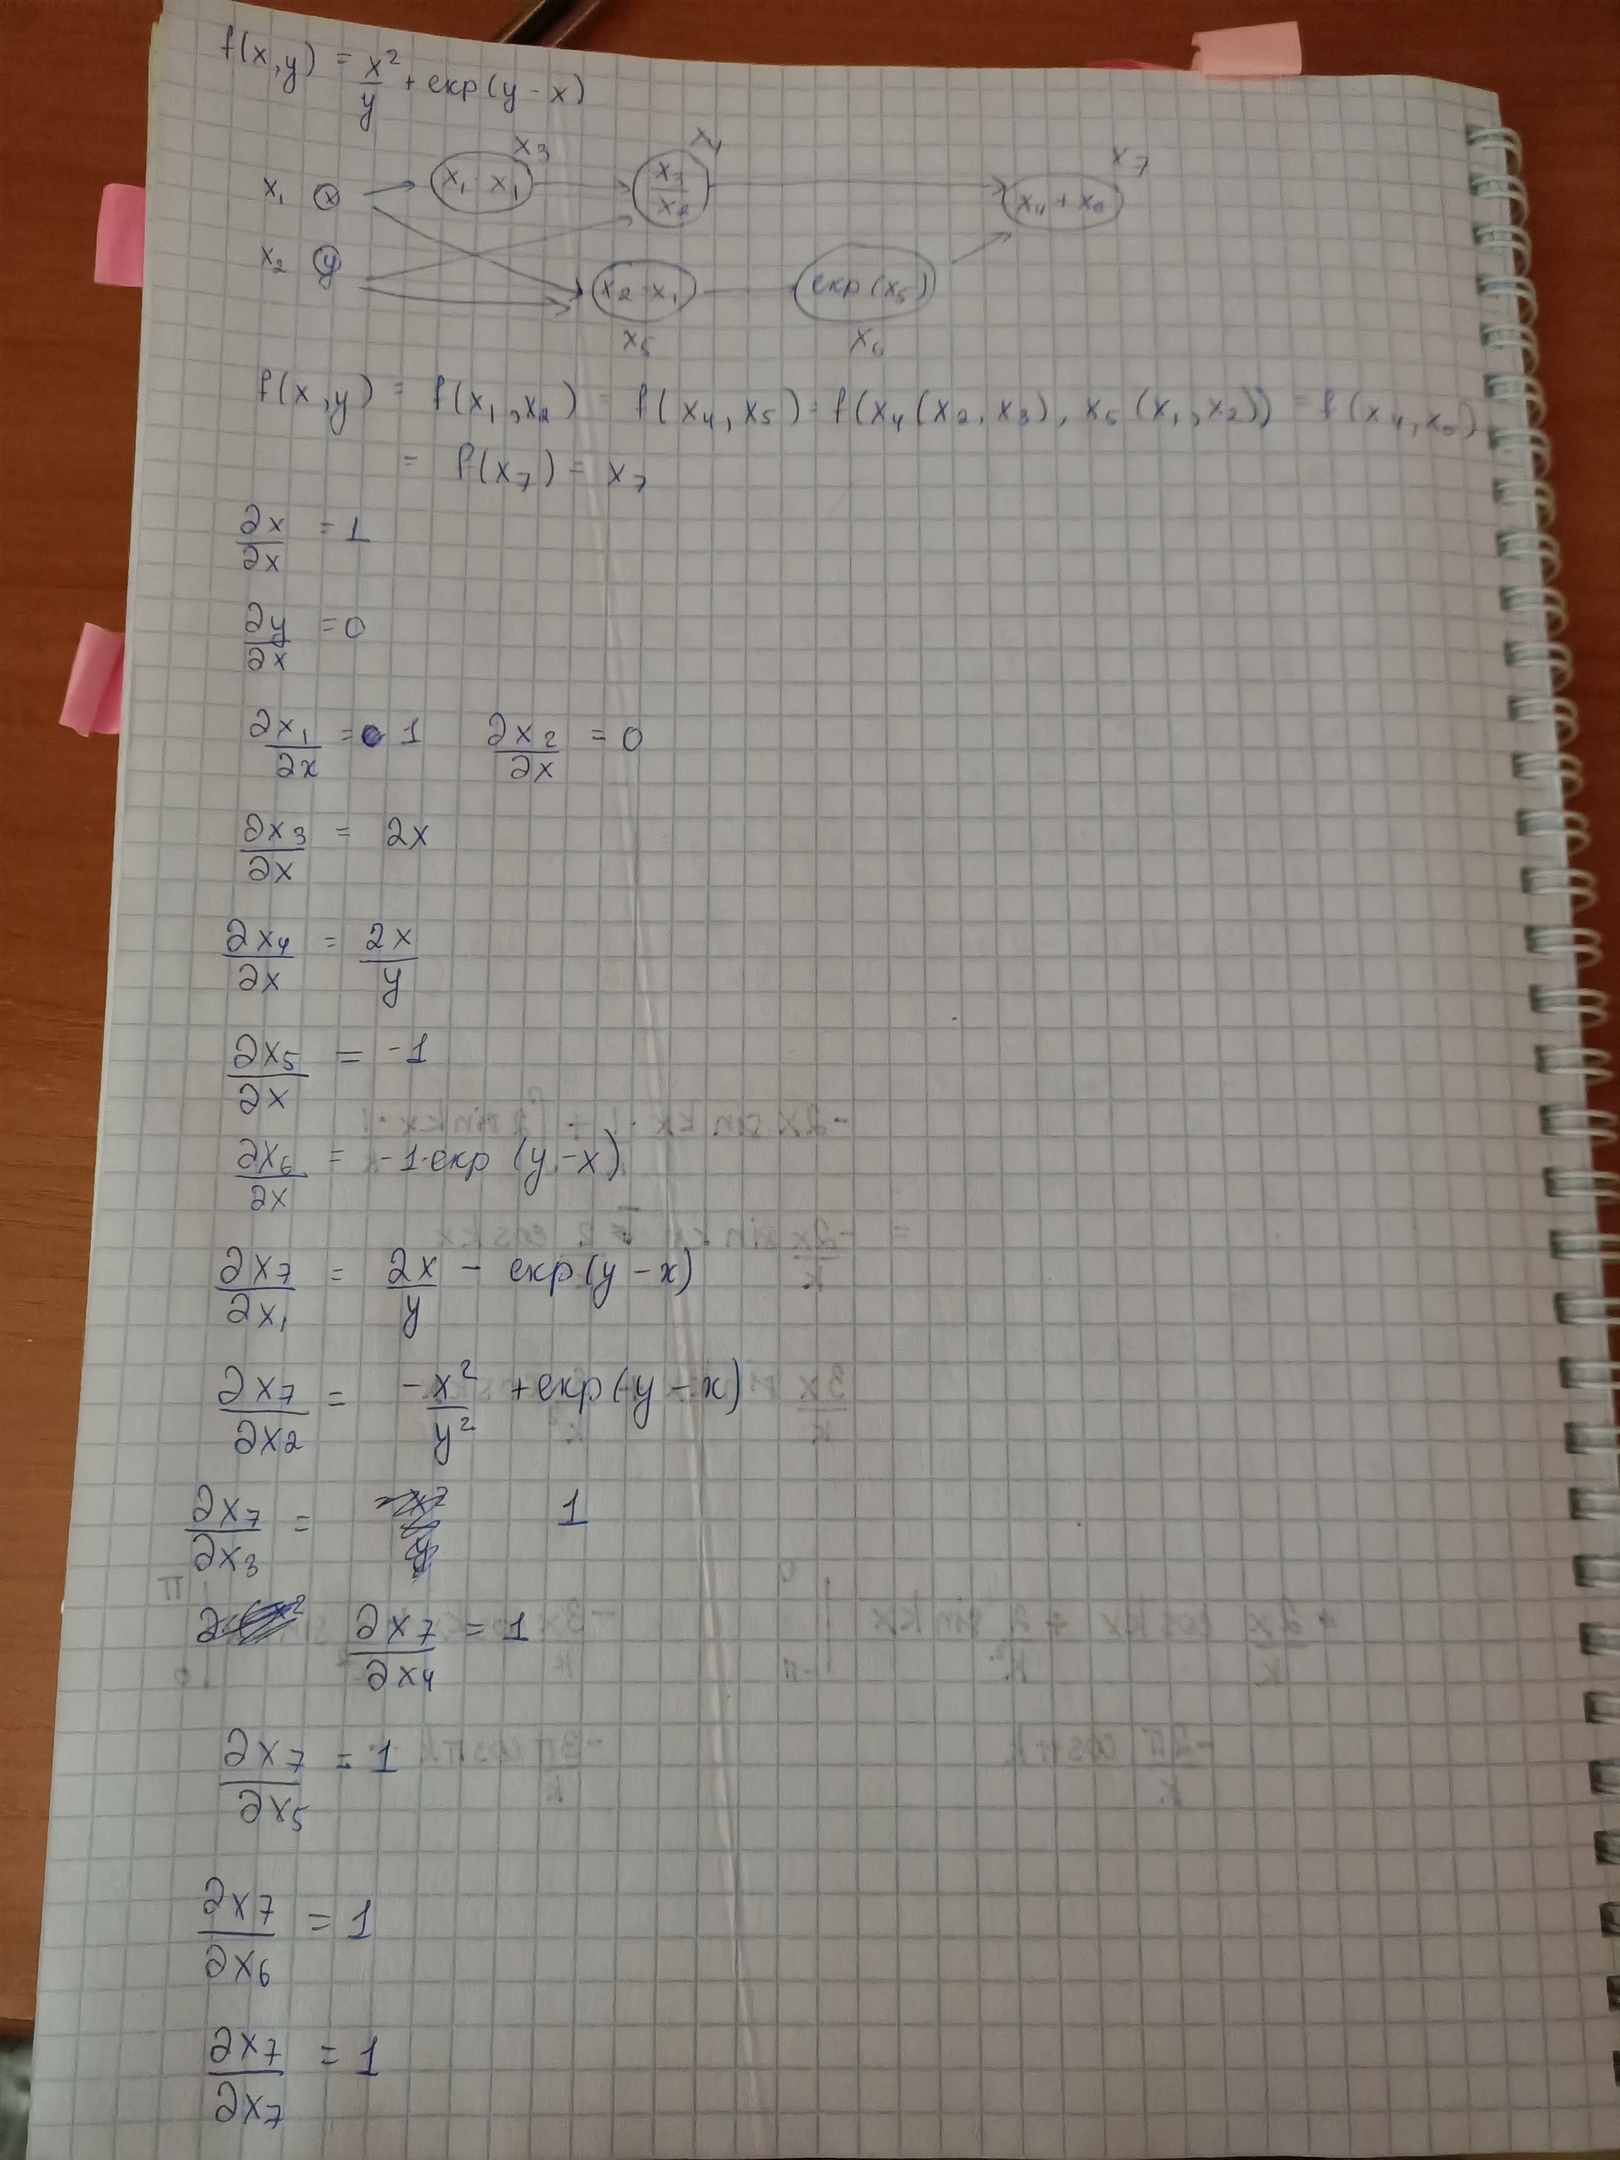 f(x,y) = x²/y + exp(y-x)
x₃ x₄ x₇
x₁ x x₁ · x₁ x₃/x₂ x₄ + x₆
x₂ y x₂ - x₁ exp(x₅)
x₅ x₆
f(x,y) = f(x₁,x₂) = f(x₄,x₅) = f(x₄(x₂,x₃), x₅(x₁,x₂)) = f(x₄,x₆)
= f(x₇) = x₇
∂x/∂x = 1
∂y/∂x = 0
∂x₁/∂x = 1 ∂x₂/∂x = 0
∂x₃/∂x = 2x
∂x₄/∂x = 2x/y
∂x₅/∂x = -1
∂x₆/∂x = -1·exp(y-x)
∂x₇/∂x₁ = 2x/y - exp(y-x)
∂x₇/∂x₂ = -x²/y² + exp(y-x)
∂x₇/∂x₃ = 1
∂x₇/∂x₄ = 1
∂x₇/∂x₅ = 1
∂x₇/∂x₆ = 1
∂x₇/∂x₇ = 1